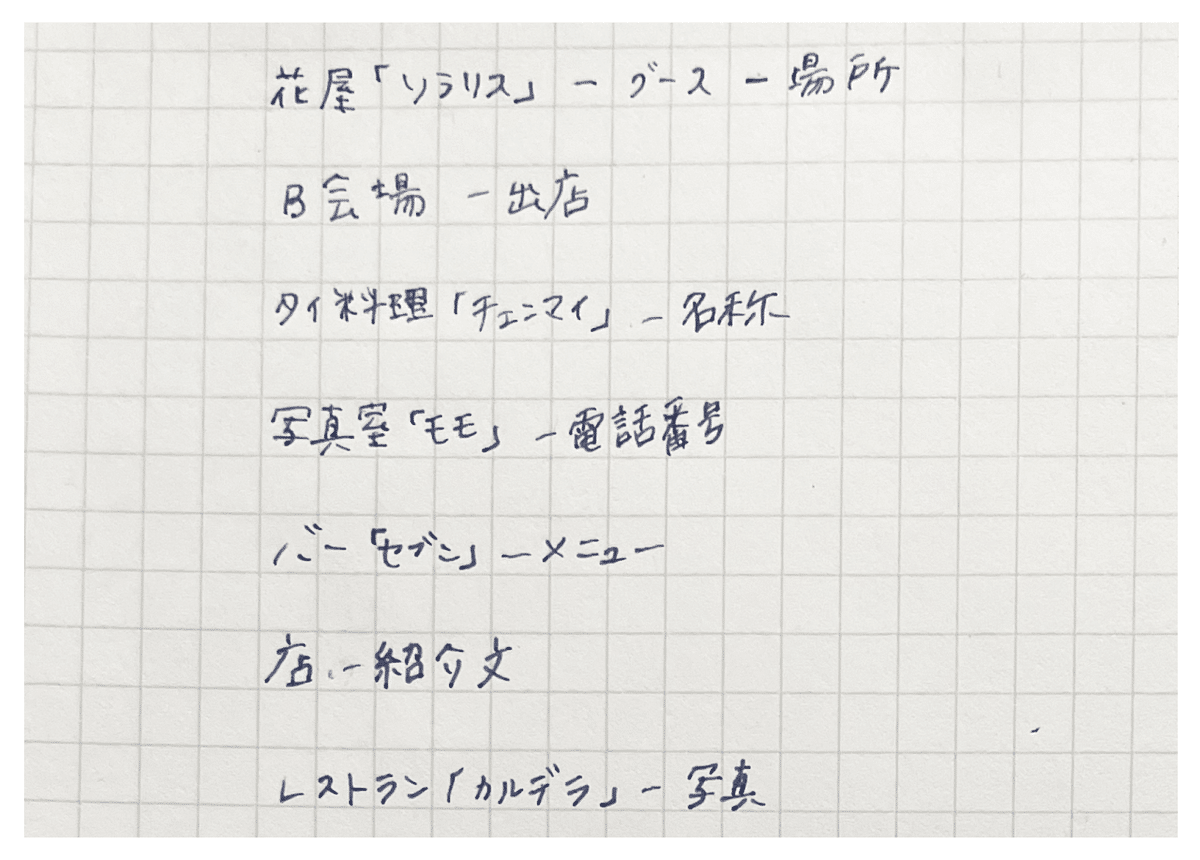 花屋「ソラリス」－ブース－場所
B会場 －出店
タイ料理「チェンマイ」－名称
写真室「モモ」－電話番号
バー「セブン」－メニュー
店－紹介文
レストラン「カルデラ」－写真